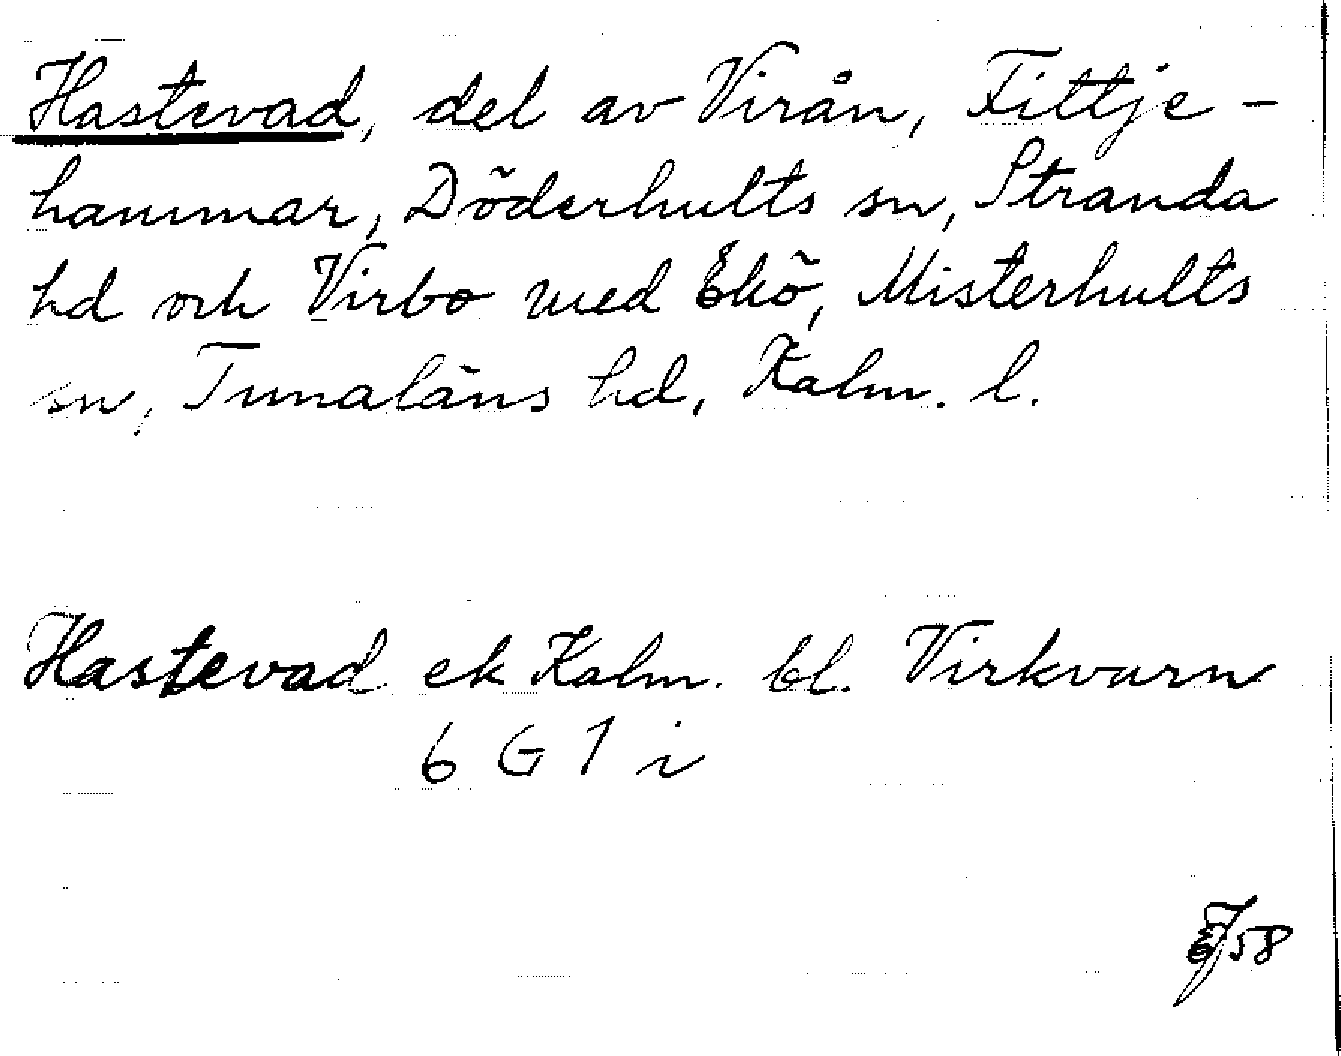 Hastevad, del av Virån, Fittje-
hammar, Döderhults sn, Stranda
hd och Virbo med Ekö, Misterhults
sn, Tunaläns hd, Kalm. l.
Hastevad ek Kalm. bl. Virkvarn
6 G 1 i
58